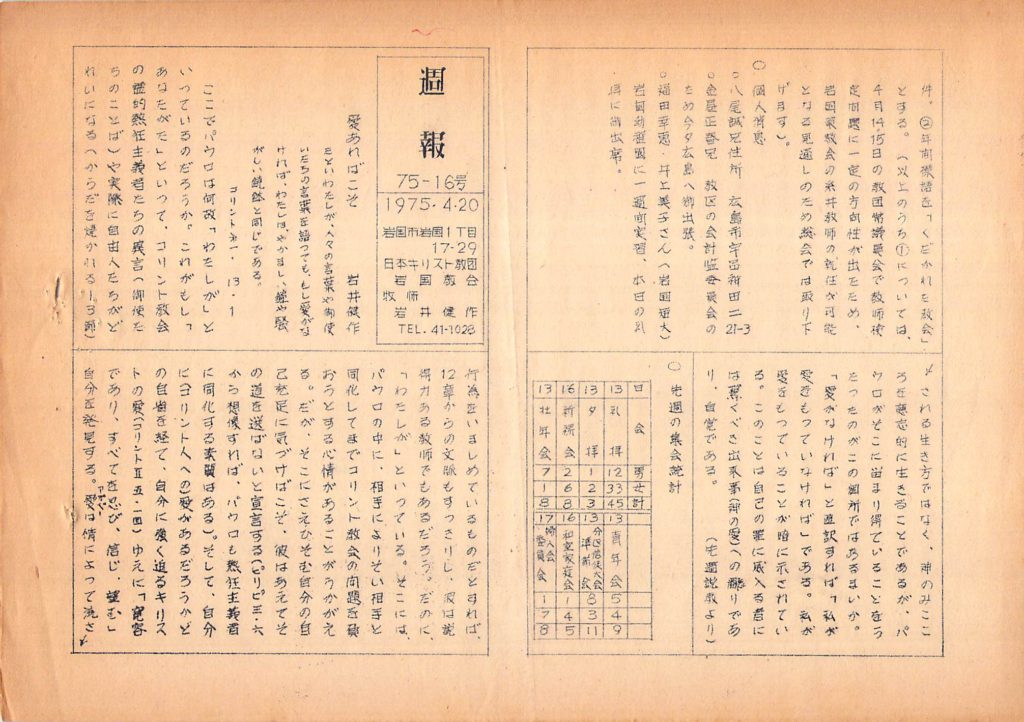 週報
75-16号
1975・4・20
岩国市岩国1丁目
17-29
日本キリスト教団
岩国教会
牧師
岩井健作
TEL.41-1028
愛あればこそ 岩井健作
たといわたしが、人々の言葉や御使
いたちの言葉を語っても、もし愛がな
ければ、わたしは、やかましい鐘や騒
がしい鐃鉢と同じである。
コリント第一・13・1
ここでパウロは何故「わたしが」と
いっているのだろうか。これがもし、
「あなたがた」といって、コリント教会
の霊的熱狂主義者たちの異言(御使た
ちのことば)や実際に自由人たちがど
れいになる(からだを焼かれる-3節)
行為をいましめているものだとすれば、
12章からの文脈もすっきりし、彼は説
得力ある教師でもあるだろう。だのに、
「わたしが」といっている。そこには、
パウロの中に、相手によりそい相手と
同化してまでコリント教会の問題を
おうとする心情があることがうかがえ
る。だが、そこにさえひそむ自分の自
己充足に気づけばこそ、彼はあえてそ
の道を選ばないと宣言する(ピリピ三・六
から想像すれば、パウロも熱狂主義者
に同化する素質はある)。そして、自分
に(コリント人への)愛があるだろうかと
の自由を経て、自分に強く迫るキリス
トの愛(コリントⅡ五・一四)ゆえに「寛容
であり、すべてを忍び、信じ、望む」
自分を発見する。愛は情によって流さ
アガペー
される生き方ではなく、神のみここ
ろを意志的に生きることであるが、パ
ウロがそこに留まり得ていることをう
たったのがこの個所ではあるまいか。
「愛がなければ」と直訳すれば「私が
愛をもっていなければ」である。私が
愛をもっていることが暗に示されてい
る。このことは自己の業に感入る者に
は驚くべき出来事(神の愛)への であ
り、自覚である。
(先週説教より)
○先週の集会統計
日 会 男 女 計
13 礼拝 12 33 45
13 夕拝 1 2 3
16 祈祷会 2 6 8
13 壮年会 7 1 8
13 青年会 5 4 9
13 分区信徒大会準備会 8 3 11
16 和室家庭会 1 4 5
17 婦人会委員会 1 7 8
件。②年間標語を「くだかれた教会」
とする。(以上のうち①については、
4月14、15日の教団常議員会で教師検
定問題に一定の方向性が出たため、
岩国東教会の糸井教師の就任が可能
となる見通しのため総会では取り下
げます)。
○個人消息
○八尾誠兄住所 広島市宇品神田二-21-3
○ 正 兄 教区の会計監査委員会の
ため今夕広島へ御出張。
○福田幸恵・井上美子さん(岩国短大)
岩国幼稚園に一週間実習、本日の礼
拝に御出席。